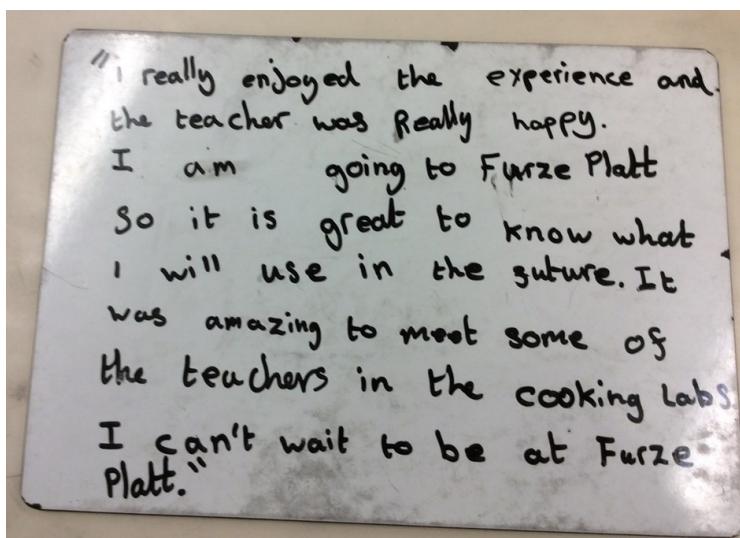 "I really enjoyed the experience and
the teacher was Really happy.
I am going to Furze Platt
So it is great to know what
I will use in the future. It
was amazing to meet some of
the teachers in the cooking Labs
I can't wait to be at Furze
Platt."